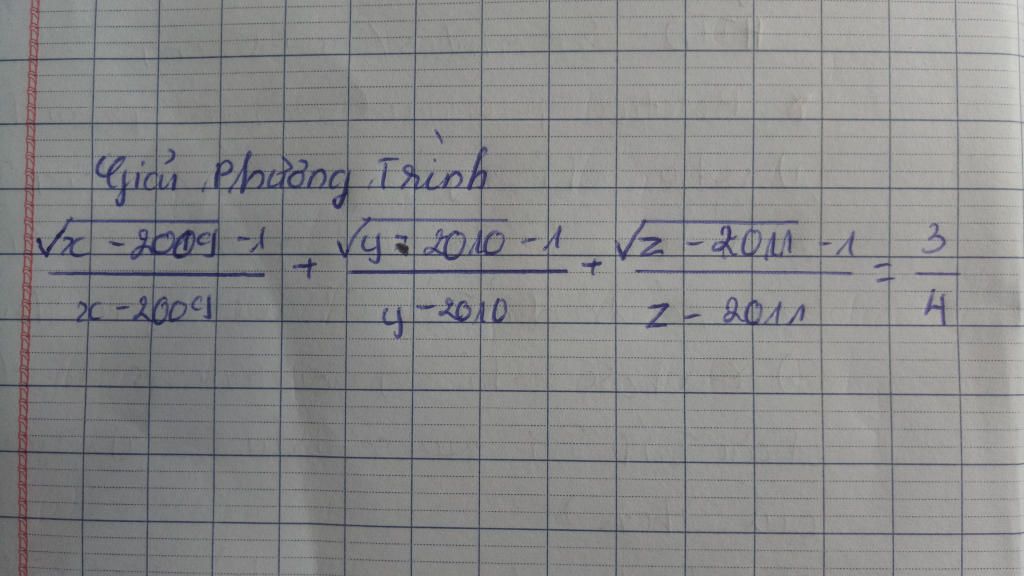 Giải Phương Trình
√x - 2009 - 1 / x - 2009 + √y - 2010 - 1 / y - 2010 + √z - 2011 - 1 / z - 2011 = 3 / 4